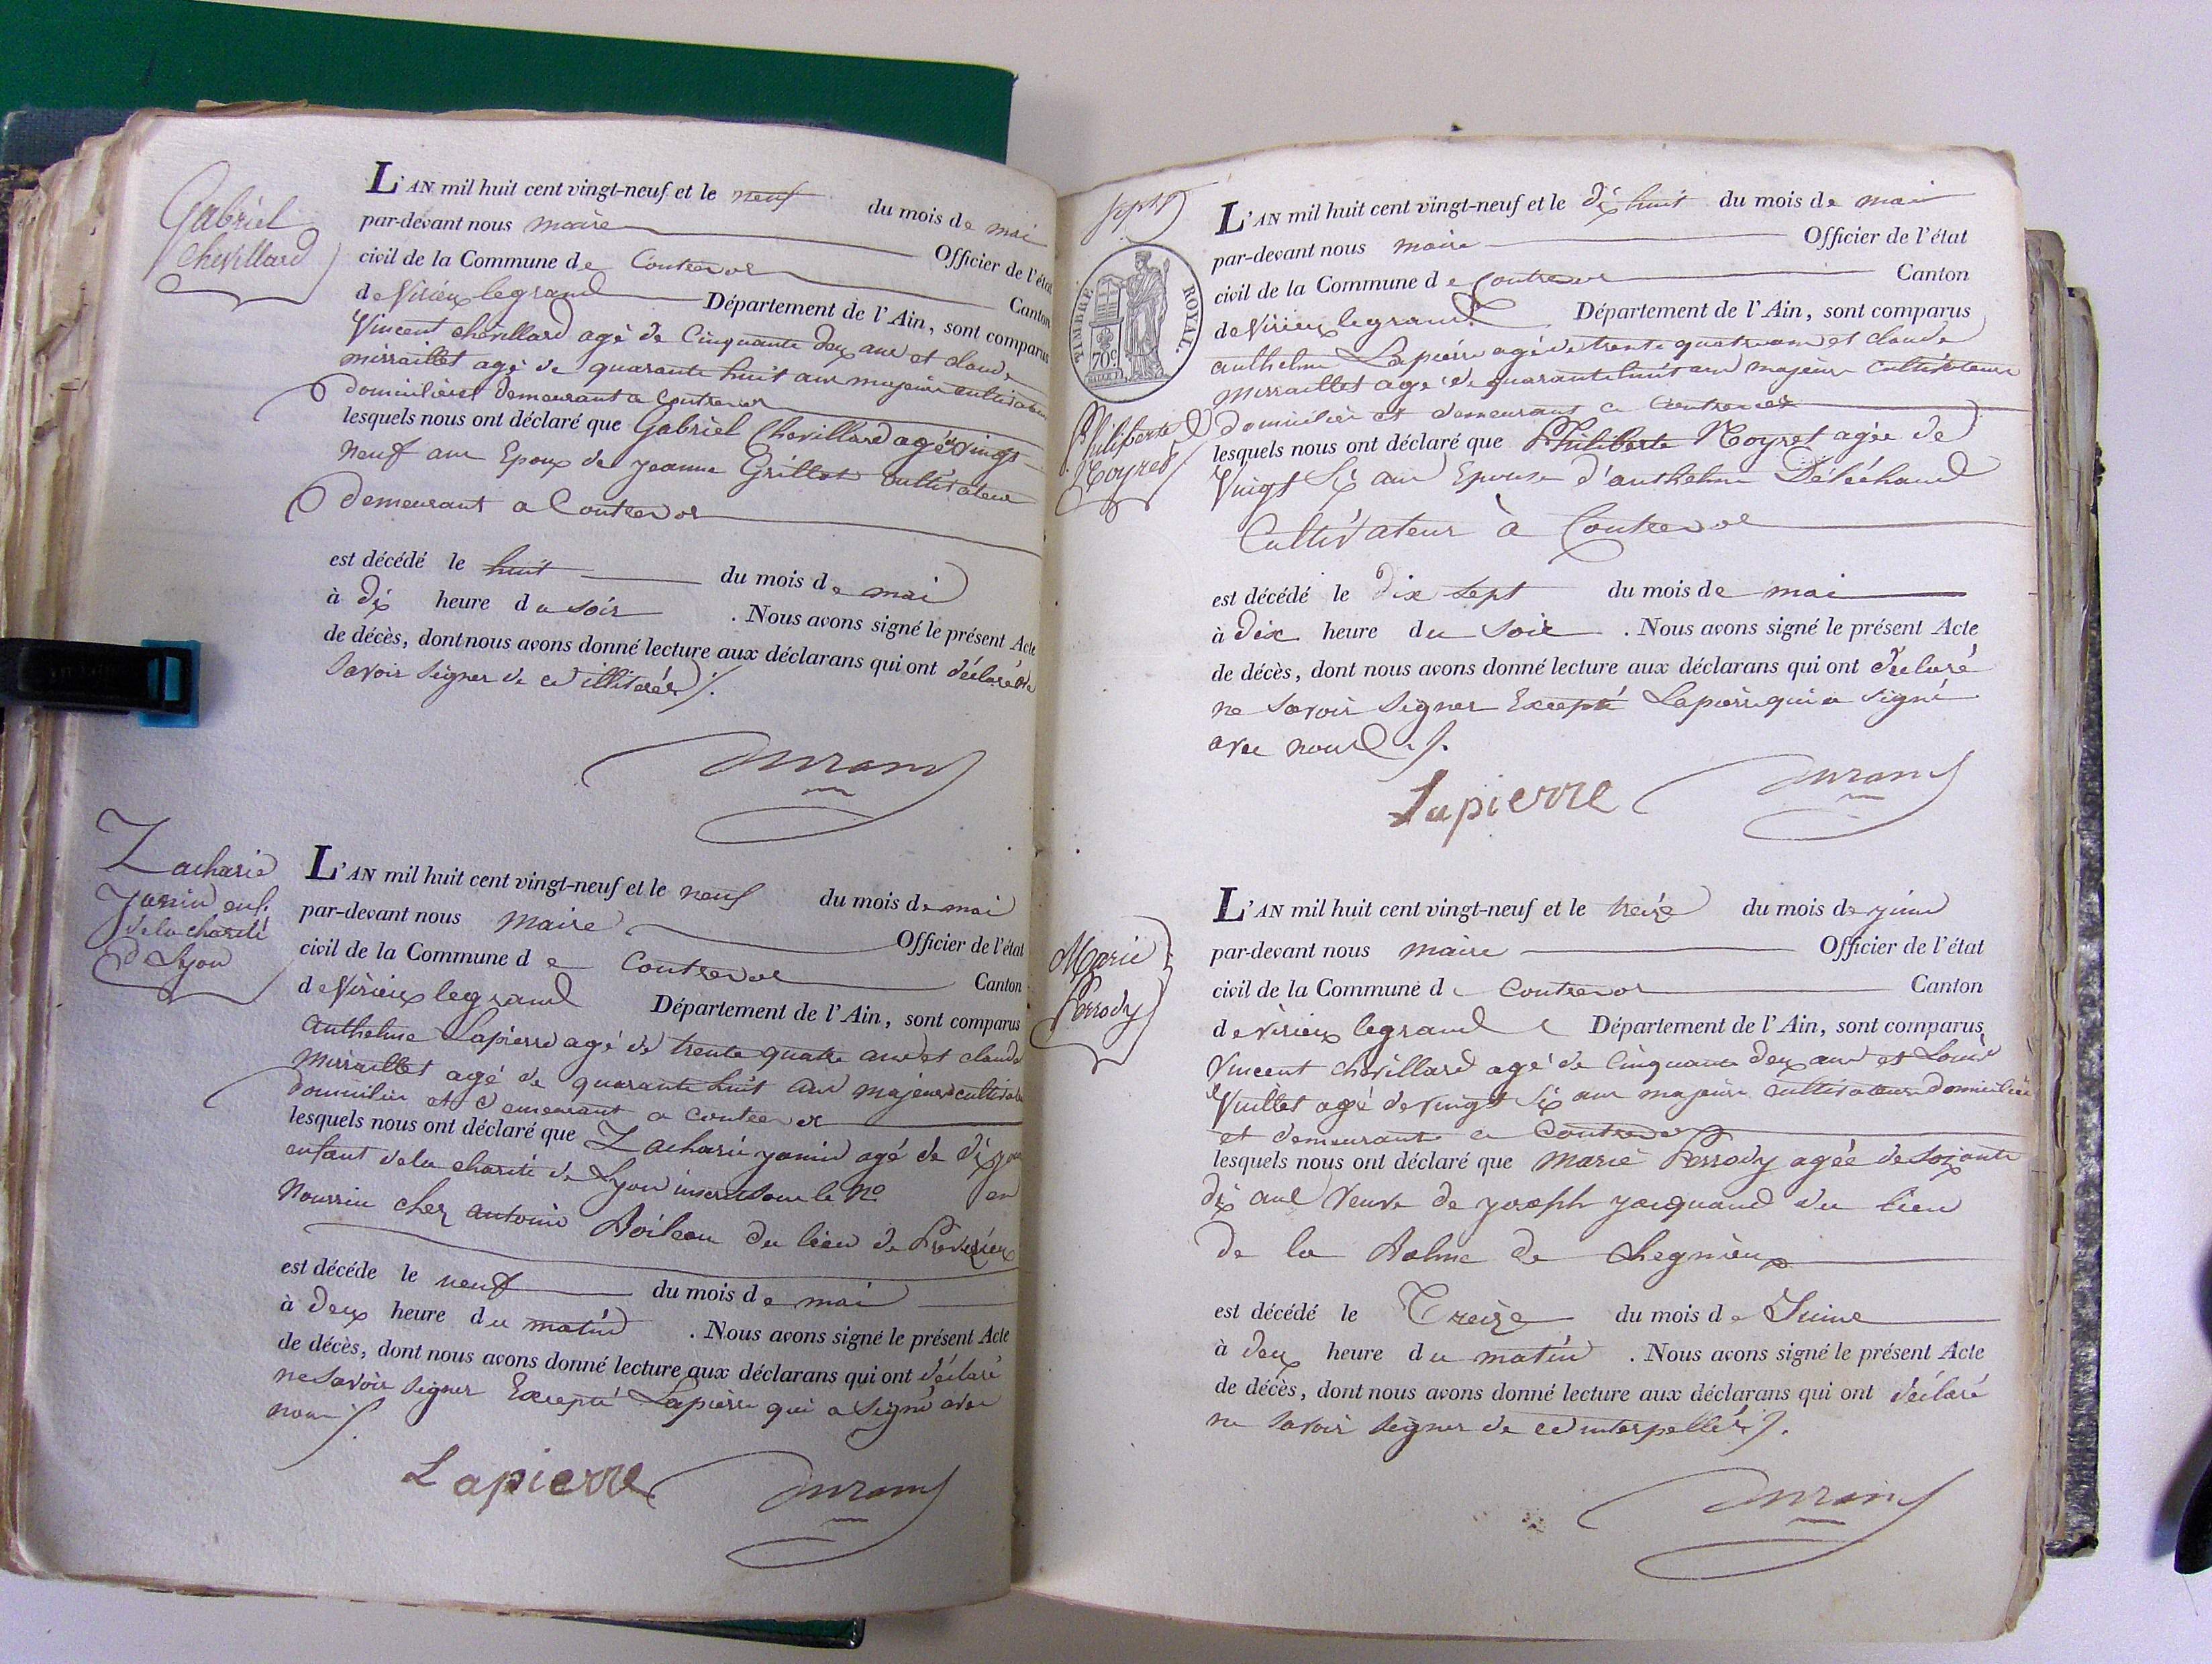 Gabriel
Chevillard
L'AN mil huit cent vingt-neuf et le neuf du mois de mai
par-devant nous maire Officier de l'état
civil de la Commune de Contrevoz Canton
de Virieux legrand Département de l'Ain, sont comparus
Vincent chevillard agé de Cinquante deux ans et claude
mirraillet agé de quarante huit ans majeurs cultivateurs
domiciliés et demeurant a Contrevoz
lesquels nous ont déclaré que Gabriel Chevillard agé de vingt
neuf ans Epoux de jeanne Grillot cultivateur
demeurant a Contrevoz
est décédé le huit du mois de mai
à dix heure du soir . Nous avons signé le présent Acte
de décès, dont nous avons donné lecture aux déclarans qui ont déclaré ne
savoir signer de ce illitérés
Durand
Zacharie
Janin enf.
de la charité
de Lyon
L'AN mil huit cent vingt-neuf et le neuf du mois de mai
par-devant nous Maire Officier de l'état
civil de la Commune de Contrevoz Canton
de Virieux legrand Département de l'Ain, sont comparus
anthelme Lapierre agé de trente quatre ans et claude
Mirraillet agé de quarante huit ans majeurs cultivateurs
domiciliés et demeurant a contrevoz
lesquels nous ont déclaré que Zacharie janin agé de dix jours
enfant de la charité de Lyon inscrit sous le No en
Nourrice chez antoine Boileau du lieu de Prévézieux
est décédé le neuf du mois de mai
à deux heure du matin . Nous avons signé le présent Acte
de décès, dont nous avons donné lecture aux déclarans qui ont déclaré
ne savoir signer Excepté Lapierre qui a signé avec
nous
Lapierre Durand
sept
TIMBRE ROYAL.
70c
L'AN mil huit cent vingt-neuf et le dix huit du mois de mai
par-devant nous maire Officier de l'état
civil de la Commune de Contrevoz Canton
de Virieux legrand Département de l'Ain, sont comparus
anthelme Lapierre agé de trente quatre ans et claude
mirraillet agé de quarante huit ans majeurs cultivateurs
domiciliés et demeurant a Contrevoz
Philiberte
Noyret
lesquels nous ont déclaré que Philiberte Noyret agée de
Vingt Six ans Epouse d'anthelme Déléchaud
Cultivateur à Contrevoz
est décédé le dix sept du mois de mai
à dix heure du soir . Nous avons signé le présent Acte
de décès, dont nous avons donné lecture aux déclarans qui ont déclaré
ne savoir signer Excepté Lapierre qui a signé
avec nous
Lapierre Durand
Marie
Perrody
L'AN mil huit cent vingt-neuf et le treize du mois de juin
par-devant nous maire Officier de l'état
civil de la Commune de Contrevoz Canton
de virieux legrand Département de l'Ain, sont comparus
Vincent chevillard agé de Cinquante deux ans et Louis
Vuillet agé de vingt Six ans majeurs cultivateurs domiciliés
et demeurants a Contrevoz
lesquels nous ont déclaré que Marie Perrody agée de soixante
dix ans Veuve de joseph jacquand du lieu
de la Balme de Chegnieux
est décédé le Treize du mois de Juine
à deux heure du matin . Nous avons signé le présent Acte
de décès, dont nous avons donné lecture aux déclarans qui ont déclaré
ne savoir signer de ce interpellés
Durand